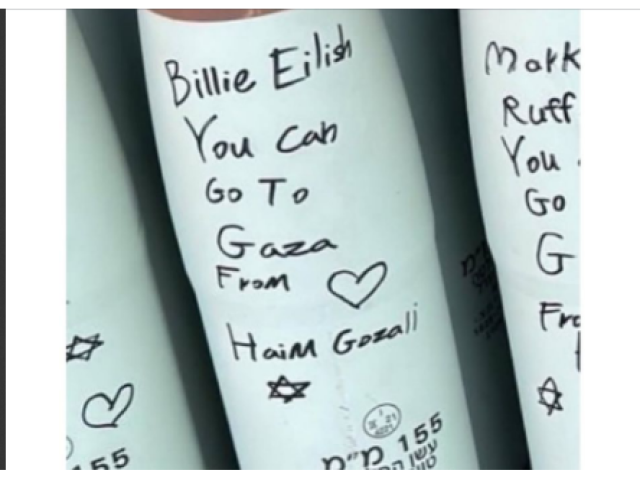 Billie Eilish
You Can
Go To
Gaza
From
Haim Gozali
155 מ"מ
עשן
Mark
Ruff
You
Go
G
Fro
155